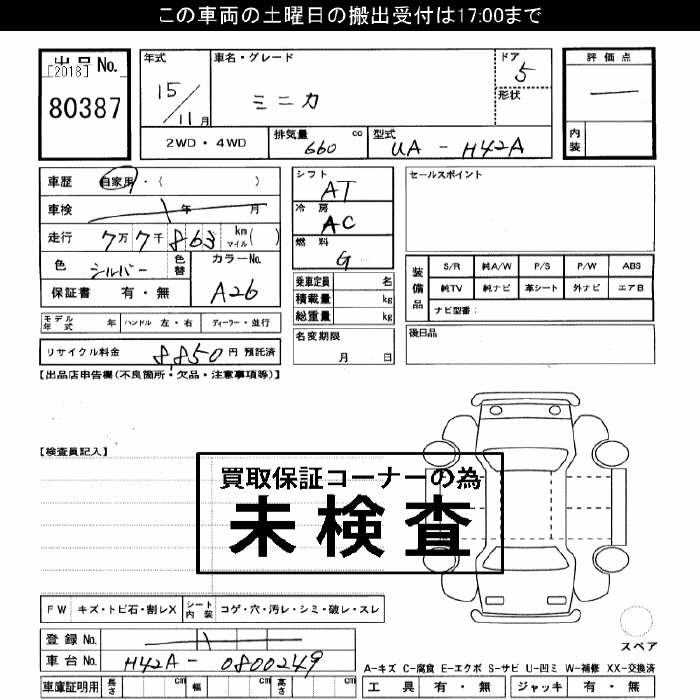 この車両の土曜日の搬出受付は17:00まで
出品 No.
[2018]
80387
年式
15/11月
車名・グレード
ミニカ
ドア
5
形状
評価点
—
内装
2WD・4WD
排気量 cc
660
型式
UA - H42A
車歴 自家用・( )
車検 年 月
走行 7万7千863 km マイル( )
色 シルバー 色替
カラーNo.
A26
保証書 有・無
シフト
AT
冷房
AC
燃料
G
乗車定員 名
積載量 kg
総重量 kg
セールスポイント
装備品
S/R 純A/W P/S P/W ABS
純TV 純ナビ 革シート 外ナビ エアB
ナビ型番:
モデル年式 年 ハンドル 左・右 ディーラー・並行
名変期限
月 日
後日品
リサイクル料金 8,850円 預託済
【出品店申告欄(不良箇所・欠品・注意事項等)】
【検査員記入】
買取保証コーナーの為
未検査
FW キズ・トビ石・割レX シート内装 コゲ・穴・汚レ・シミ・破レ・スレ
登録No.
車台No. H42A - 0800249
スペア
A-キズ C-腐食 E-エクボ S-サビ U-凹ミ W-補修 XX-交換済
車庫証明用 長さ cm 幅 cm 高さ cm
工具 有・無 ジャッキ 有・無